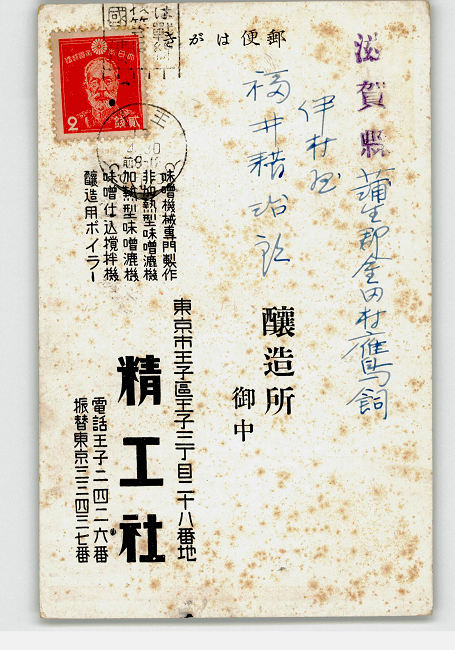 郵便はがき
滋賀縣
蒲生郡金田村鷹飼
伊村屋
福井精治郎
釀造所
御中
東京市王子區王子三丁目二十八番地
精工社
電話王子二四二六番
振替東京三三四三七番
味噌機械專門製作
非加熱型味噌漉機
加熱型味噌漉機
味噌仕込撹拌機
釀造用ボイラー
大日本帝國郵便
貳錢
2
王子